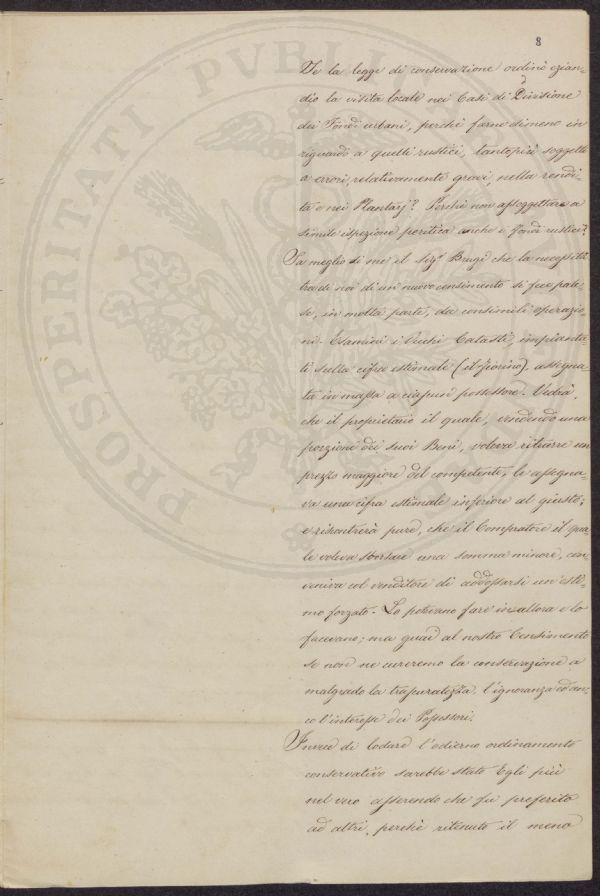 8
Se la legge di conservazione ordinò ezian-
dio la visita locale nei Casi di Divisione
dei Fondi urbani, perchè farne dimeno in
riguardo a quelli rustici, tantopiù soggetti
a errori, relativamente gravi, nella rendi-
ta e nei Plantarj? Perchè non assoggettare a
simile ispezione peritica anche i Fondi rustici?
Sa meglio di me il Sigr Brugi che la necessità
tra di noi di un nuovo censimento si fece pale-
se, in molta parte, da consimili operazio-
ni. Esamini i Vecchi Catasti, impianta-
ti sulla cifra estimale (il fiorino), assegna-
ta in massa a ciascun possessore. Vedrà,
che il proprietario il quale, vendendo una
porzione dei suoi Beni, voleva ritrarre un
prezzo maggiore del competente, le assegna-
va una cifra estimale inferiore al giusto;
e riscontrerà pure, che il Compratore il qua-
le voleva sborsare una somma minore, con-
veniva col venditore di addossarsi un esti-
mo forzato. Lo potevano fare in allora e lo
facevano; ma guai al nostro Censimento
se non ne cureremo la conservazione a
malgrado la trascuratezza, l'ignoranza ed an-
co l'interesse dei Possessori.
Invece di lodare l'odierno ordinamento
conservativo sarebbe stato Egli più
nel vero asserendo che fu preferito
ad altri, perchè ritenuto il meno
PROSPERITATI PVBLI